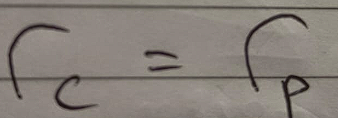 r_c = r_p